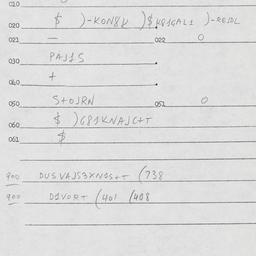 010
020 $ )-KON8K )$K8IGAL1 )-REJDL
021 — 022 0
030 PAJ1S
040 +
050 S+OJRN 051 0
060 $ )G81KNAJC+T
061 $
900 DUSVAJS3XN0S+T (738
900 D1VORT (401 /408